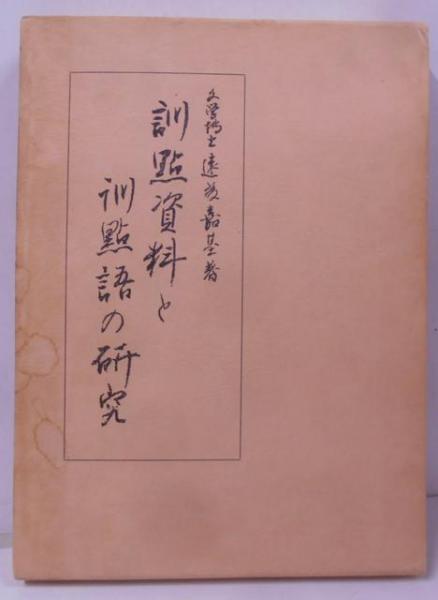 文学博士 遠藤嘉基著
訓點資料と
訓點語の研究